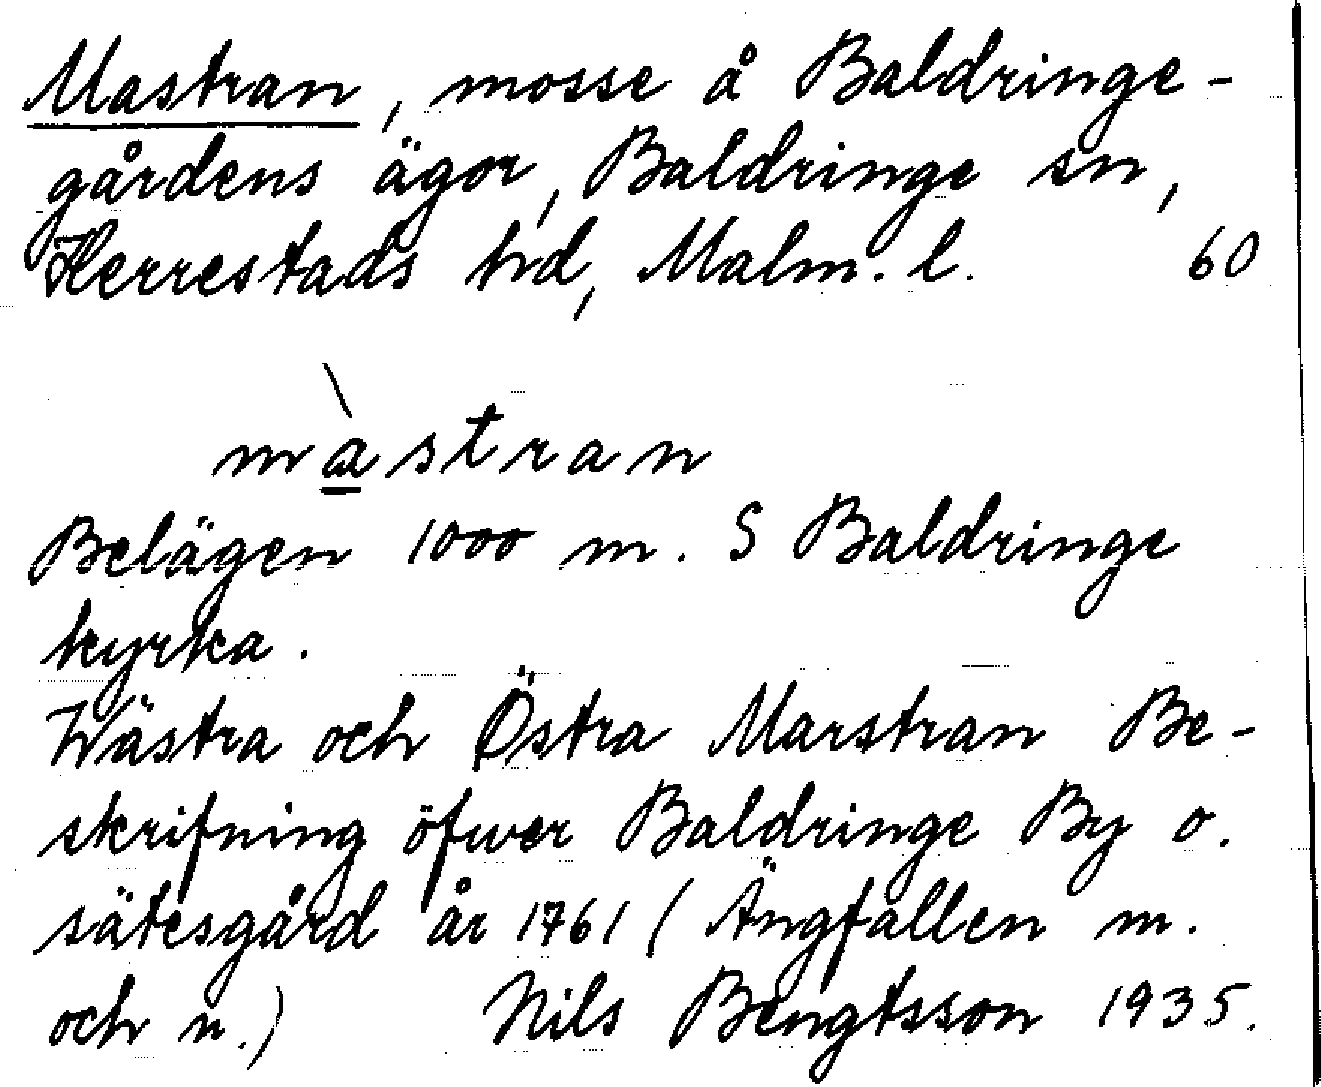 Mastran, mosse å Baldringe-
gårdens ägor, Baldringe sn,
Herrestads hd, Malm. l. 60
màstran
Belägen 1000 m. S Baldringe
kyrka.
Wästra och Östra Marstran Be-
skrifning öfwer Baldringe By o.
sätesgård år 1761 (Ängfallen m.
och n.) Nils Bengtsson 1935.